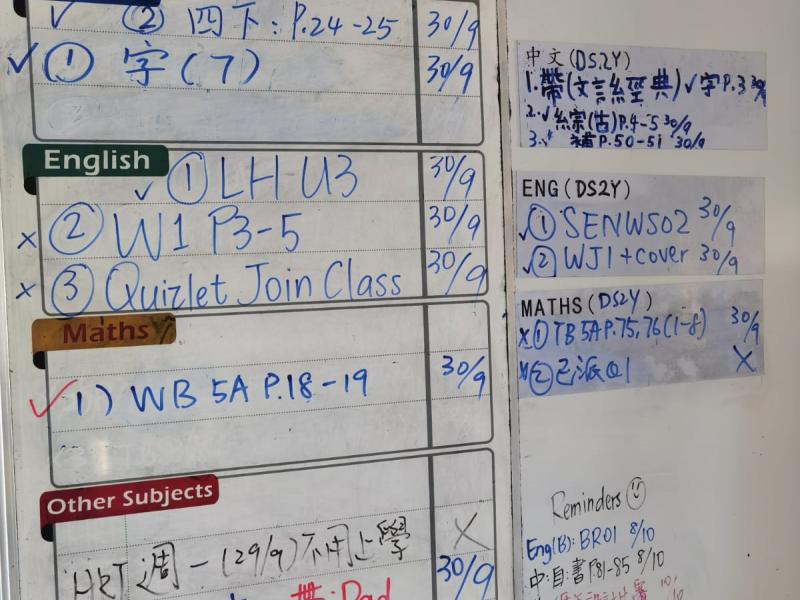 ✓ ② 四下：P.24-25 30/9
✓ ① 字(7) 30/9
English
✓ ① LH U3 30/9
x ② W1 P3-5 30/9
x ③ Quizlet Join Class 30/9
Maths
✓ 1) WB 5A P.18-19 30/9
Other Subjects
週一(29/9)不用上學 X
30/9
帶:Pad
中文(DS2Y)
1.帶(文言經典)✓字P.3 30/9
2.✓綜(古)P.4-5 30/9
3.✓ 補P.50-51 30/9
ENG(DS2Y)
✓① SENWS02 30/9
✓② WJ1+cover 30/9
MATHS(DS2Y)
x① TB 5A P.75,76(1-8) 30/9
② 已派Q1 X
Reminders
Eng(B): BR01 8/10
中:自:書P.81-85 8/10